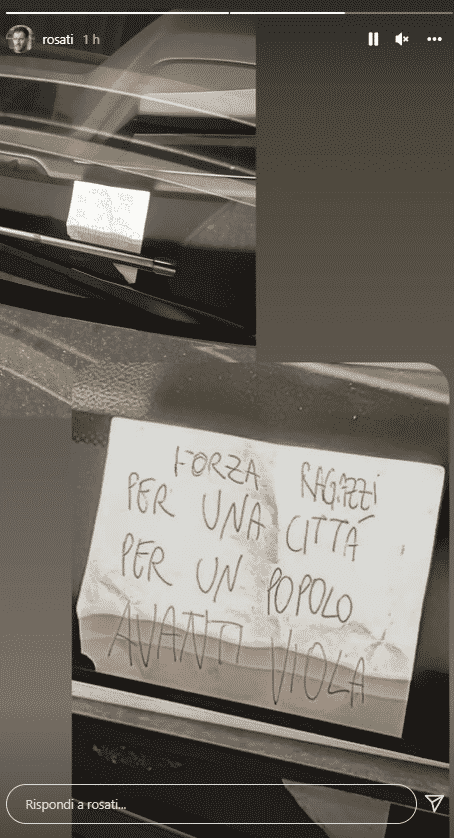 rosati 1 h
FORZA RAGAZZI
PER UNA CITTÁ
PER UN POPOLO
AVANTI VIOLA
Rispondi a rosati...